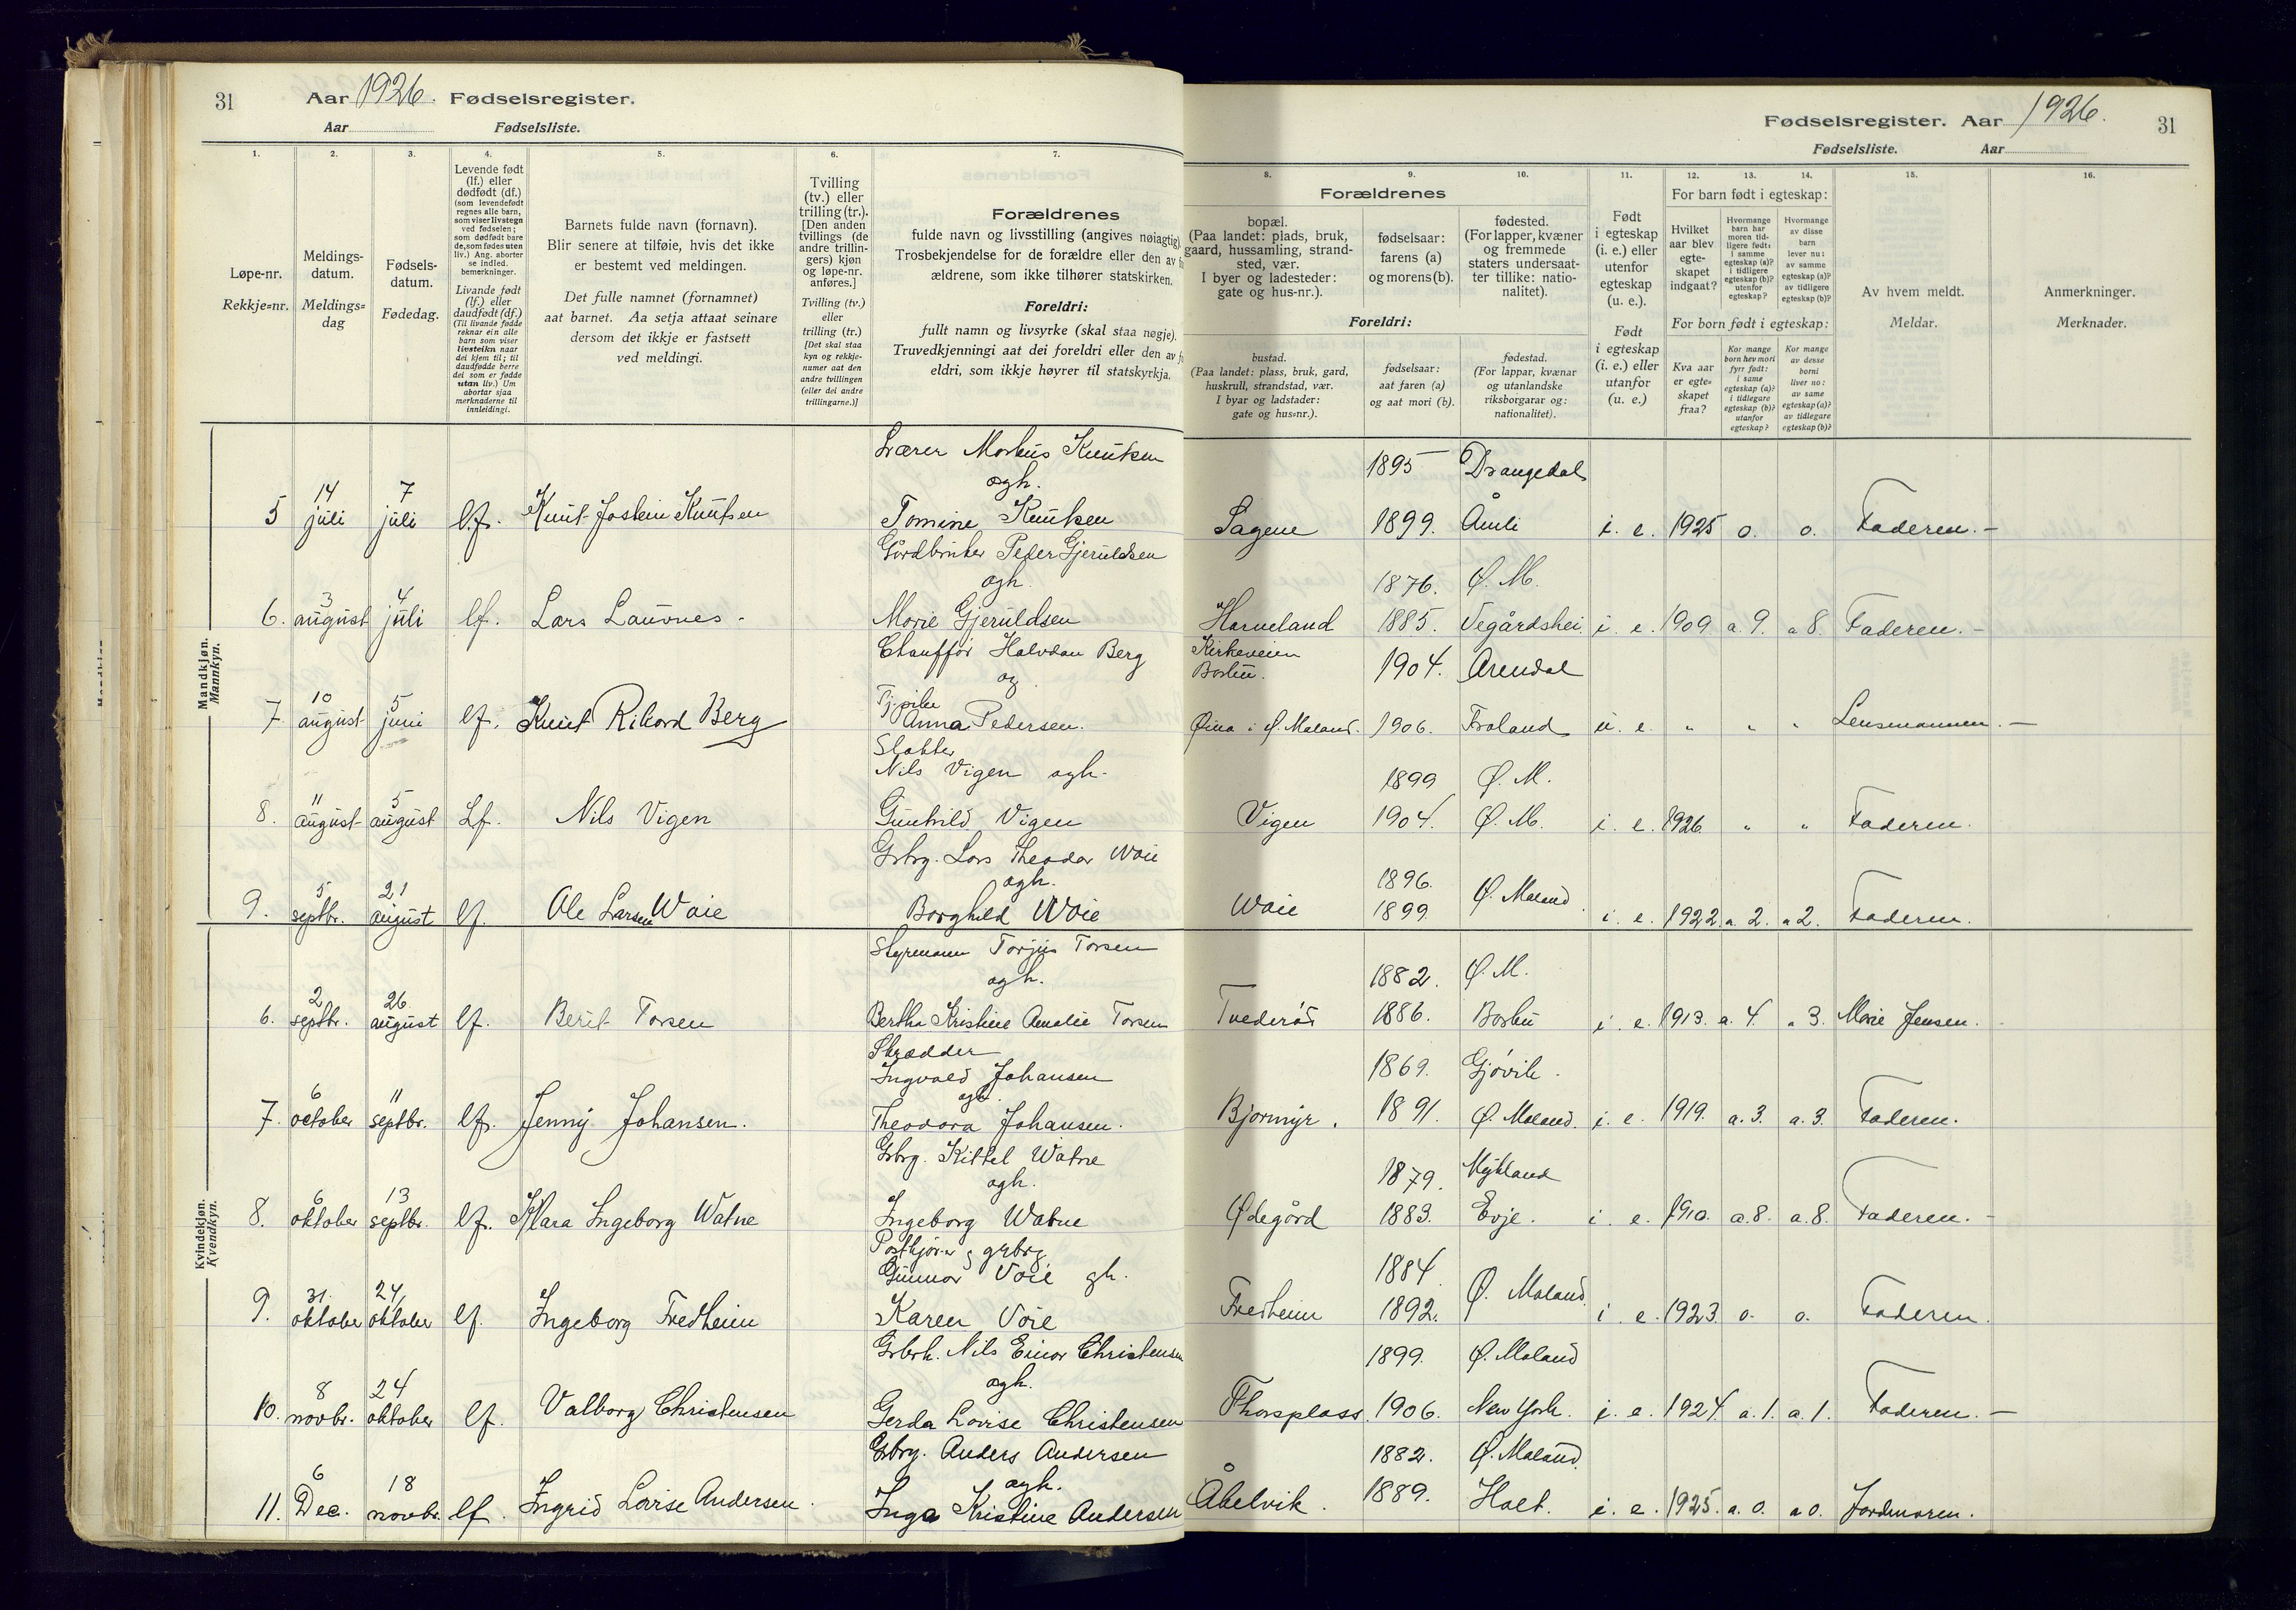 31
Aar 1926. Fødselsregister.
Aar Fødselsliste.
Fødselsregister. Aar 1926.
31
Fødselsliste. Aar
1. 2. 3. 4. 5. 6. 7.
Løpe-nr.
Rekkje=nr.
Meldings-
datum.
Meldings=
dag
Fødsels-
datum.
Fødedag.
Levende født
(lf.) eller
dødfødt (df.)
(som levendefødt
regnes alle barn,
som viser livstegn
ved fødselen;
som dødfødt bare
de, som fødes uten
liv.) Ang. aborter
se indled.
bemerkninger.
Livande født
(lf.) eller
daudfødt (df.)
(Til livande fødde
reknar ein alle
barn som viser
livsteikn naar
dei kjem til; til
daudfødde berre
dei som er fødde
utan liv.) Um
abortar sjaa
merknaderne til
innleidingi.
Barnets fulde navn (fornavn).
Blir senere at tilføie, hvis det ikke
er bestemt ved meldingen.
Det fulle namnet (fornamnet)
aat barnet. Aa setja attaat seinare
dersom det ikkje er fastsett
ved meldingi.
Tvilling
(tv.) eller
trilling (tr.).
[Den anden
tvillings (de
andre trillin-
gers) kjøn
og løpe-nr.
anføres.]
Tvilling (tv.)
eller
trilling (tr.)
[Det skal staa
kyn og rekkje-
numer aat den
andre tvillingen
(eller dei andre
trillingarne.)]
Forældrenes
fulde navn og livsstilling (angives nøiagtig).
Trosbekjendelse for de forældre eller den av
ældrene, som ikke tilhører statskirken.
Foreldri:
fullt namn og livsyrke (skal staa nøgje).
Truvedkjenningi aat dei foreldri eller den av
eldri, som ikkje høyrer til statskyrkja.
8. 9. 10. 11. 12. 13. 14. 15. 16.
Forældrenes
bopæl.
(Paa landet: plads, bruk,
gaard, hussamling, strand-
sted, vær.
I byer og ladesteder:
gate og hus-nr.).
fødselsaar:
farens (a)
og morens (b).
fødested.
(For lapper, kvæner
og fremmede
staters undersaat-
ter tillike: natio-
nalitet).
Foreldri:
bustad.
(Paa landet: plass, bruk, gard,
huskrull, strandstad, vær.
I byar og ladstader:
gate og hus=nr.).
fødselsaar:
aat faren (a)
og aat mori (b).
fødestad.
(For lappar, kvænar
og utanlandske
riksborgarar og:
nationalitet).
Født
i egteskap
(i. e.) eller
utenfor
egteskap
(u. e.).
Født
i egteskap
(i. e.) eller
utanfor
(u. e.)
For barn født i egteskap:
Hvilket
aar blev
egte-
skapet
indgaat?
Hvormange
barn har
moren tid-
ligere født:
i samme
egteskap (a)?
i tidligere
egteskap (b)?
utenfor
egteskap?
Hvormange
av disse
barn
lever nu:
av samme
egteskap (a)?
av tidligere
egteskap (b)?
For born født i egteskap:
Kva aar
er egte=
skapet
fraa?
Kor mange
born hev mori
fyrr født:
i same
egteskap (a)?
i tidlegare
egteskap (b)?
utanfor
egteskap?
Kor mange
av desse
borni
liver no:
av same
egteskap (a)?
av tidlegare
egteskap (b)?
Av hvem meldt.
Meldar.
Anmerkninger.
Merknader.
Mandkjøn.
Mannkyn.
Lærer Markus Knutsen 1895 Drangedal
ogh.
5 14 juli 7 juli l.f. Knut Jostein Knutsen Tomine Knutsen Sagene 1899. Åmli i. e. 1925 0. 0. Faderen.-
Gårdbruker Peder Gjeruldsen 1876. Ø. M.
ogh.
6. 3 august 4 juli lf. Lars Launes - Marie Gjeruldsen Harneland 1885. Vegårdshei. i. e. 1909 a. 9. a 8. Faderen.-
Chauffør Halvdan Berg Kirkeveien Barbu. 1904. Arendal
og
7. 10 august 5 juni lf. Knut Rikard Berg Tjpike Anna Pedersen. Øina i Ø. Moland. 1906. Froland u. e. " " " Lensmannen.-
Slakter
Nils Vigen ogh. 1899 Ø. M.
8. 11 august 5 august Lf. Nils Vigen Gunhild Vigen Vigen 1904. Ø. M. i. e. 1926 " " Faderen.
Grbrg. Lars Theodor Woie 1896.
ogh.
9. 5 septbr. 21 august lf. Ole Larsen Woie Borghild Woie Woie 1899. Ø. Moland. i. e. 1922 a. 2. a 2. Faderen.
Kvindekjøn.
Kvendkyn.
Styrmann Torjus Torsen 1882. Ø. M.
ogh.
6. 2 septbr. 26 august lf. Berit Torsen Bertha Kristine Amalie Torsen 1886. Barbu i. e. 1913. a. 4. a 3. Marie Jensen.
Skrædder
Ingvald Johansen 1869. Gjøvik.
ogh.
7. 6 october 11 septbr. lf. Jenny Johansen. Theodora Johansen. Bjormyr. 1891. Ø. Moland. i. e. 1919. a. 3. a. 3. Faderen.
Grbrg. Kittel Watne 1879. Mykland
ogh.
8. 6 oktober 13 septbr. lf. Klara Ingeborg Watne Ingeborg Watne Ødegård 1883. Evje. i. e. 1910. a. 8. a. 8. Faderen.-
Postkjører og grbrg
Gunnar Voie gh. 1884
9. 31. oktober 24 oktober lf. Ingeborg Fredheim Karen Voie Fredheim 1892. Ø. Moland i. e. 1923. 0. 0. Faderen.
Grbrk. Nils Einar Christensen 1899. Ø. Moland
ogh.
10. 8 novbr. 24 oktober lf. Valborg Christensen Gerda Lovise Christensen Thorsplass. 1906. New York. i. e. 1924 a. 1. a. 1. Faderen.-
Grbrg. Anders Andersen 1882. Ø. Moland.
ogh.
11. 6 Dec. 18 novbr. lf. Ingrid Lovise Andersen. Inga Kristine Andersen Åkelvik. 1889. Holt. i. e. 1925. a. 0. a 0. Jordmoren.